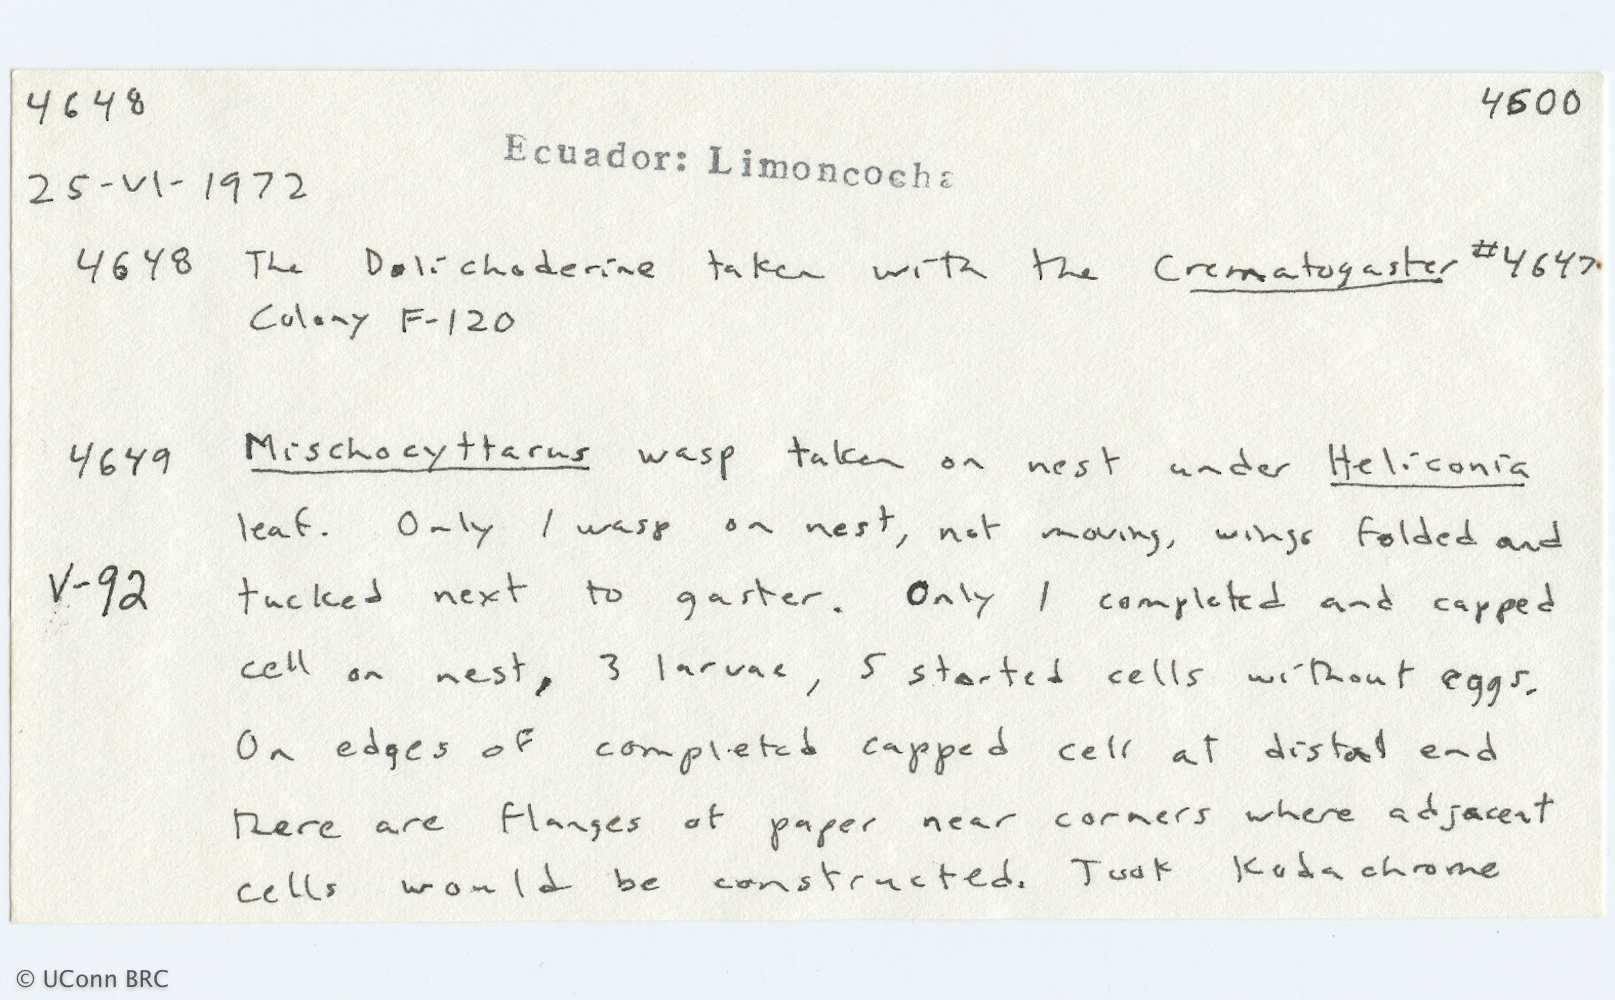 4648 4600
Ecuador: Limoncocha
25-VI-1972
4648 The Dolichoderine taken with the Crematogaster #4647
Colony F-120
4649 Mischocyttarus wasp taken on nest under Heliconia
leaf. Only 1 wasp on nest, not moving, wings folded and
V-92 tucked next to gaster. Only 1 completed and capped
cell on nest, 3 larvae, 5 started cells without eggs.
On edges of completed capped cell at distal end
there are flanges of paper near corners where adjacent
cells would be constructed. Took Kodachrome
© UConn BRC